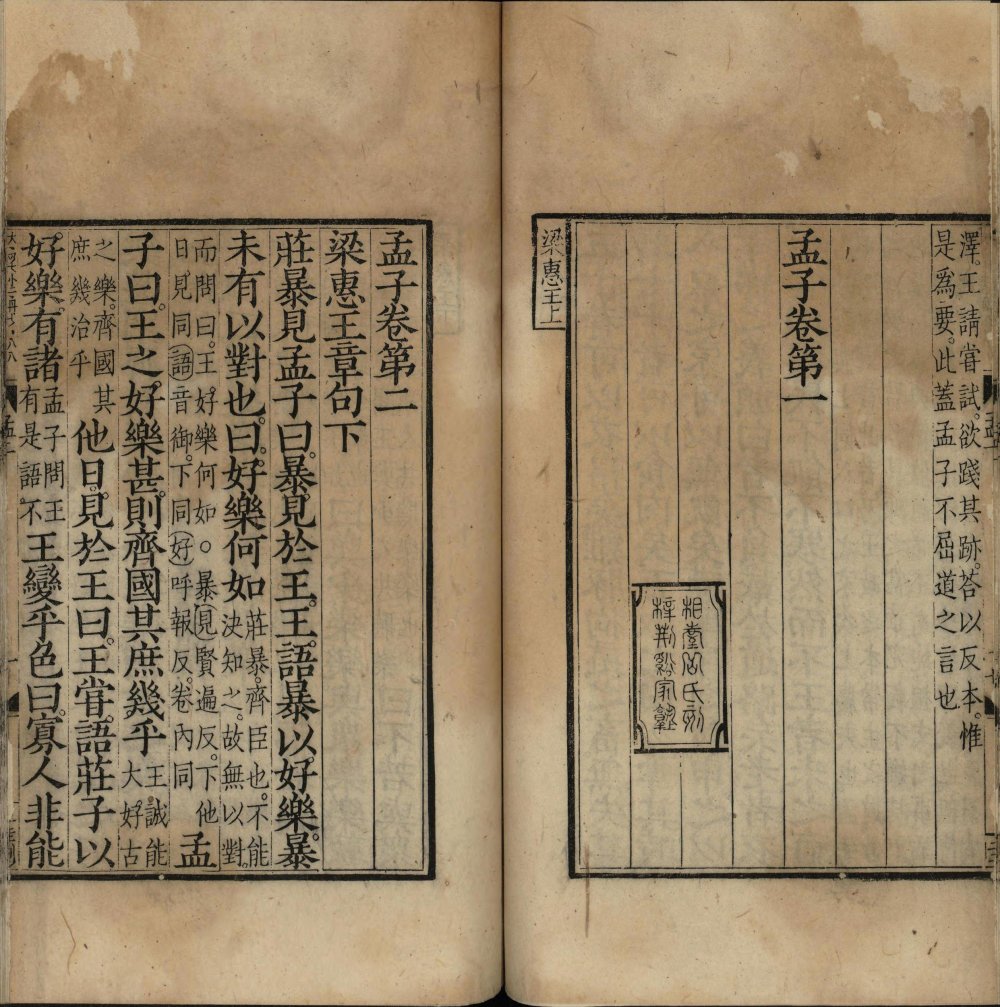 澤。王請嘗試。欲踐其跡。荅以反本。惟
是爲要。此蓋孟子不屈道之言也
孟子卷第一
相臺岳氏刻
梓荆谿家塾
梁惠王上
孟子卷第二
梁惠王章句下
莊暴見孟子曰。暴見於王。王語暴以好樂。暴
未有以對也。曰。好樂何如莊暴。齊臣也。不能決知之。故無以對。
而問曰。王好樂何如。○暴見賢遍反。下他日見同語音御。下同好呼報反。卷內同孟
子曰。王之好樂甚。則齊國其庶幾乎王誠能大好古
之樂。齊國其庶幾治乎他日。見於王曰。王嘗語莊子以
好樂。有諸孟子問王有是語不。王變乎色曰。寡人非能